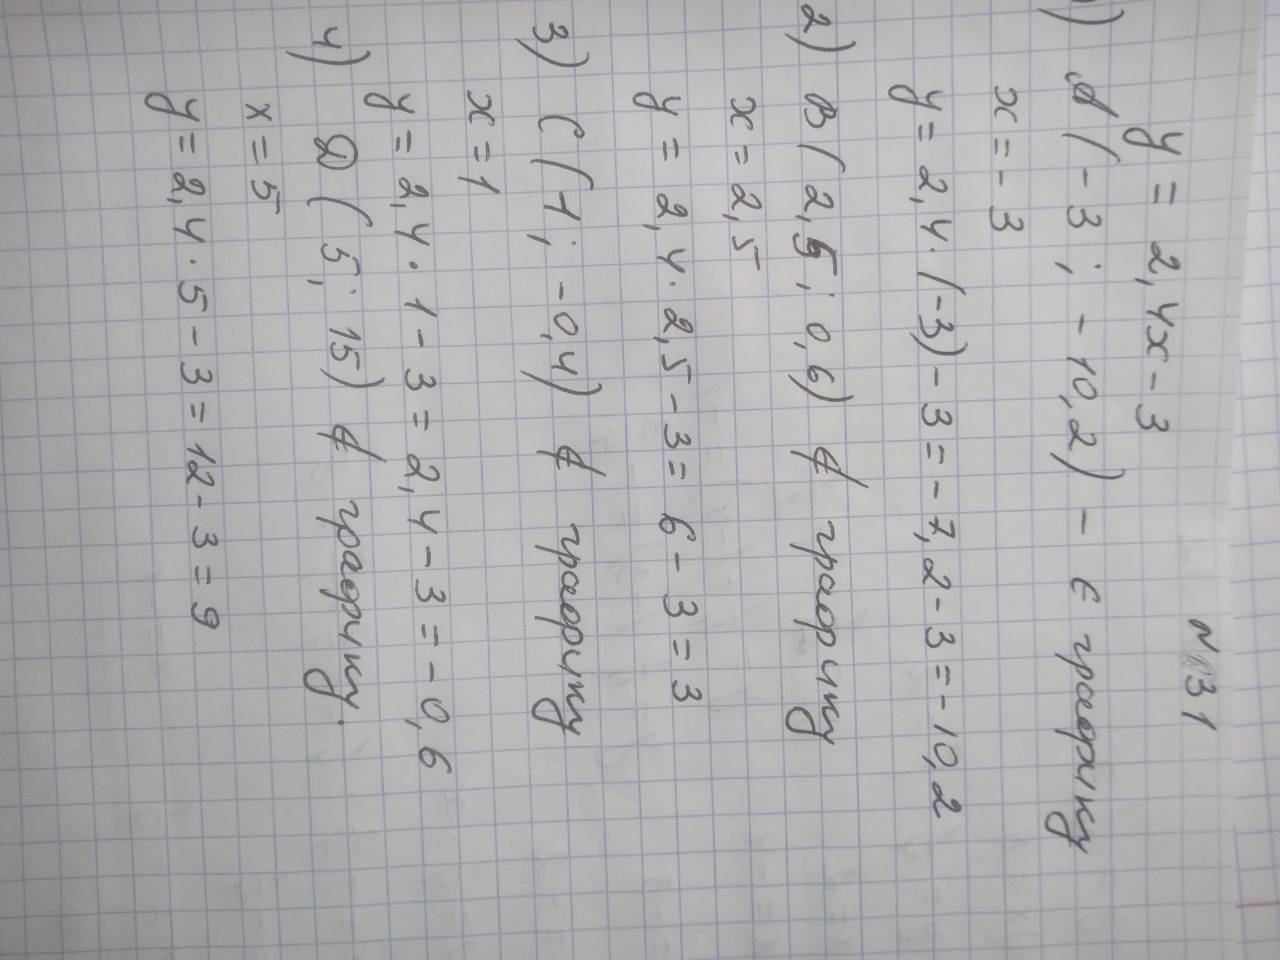 №31
y = 2,4x - 3
1) A (-3; -10,2) - ∈ графику
x = -3
y = 2,4 · (-3) - 3 = -7,2 - 3 = -10,2
2) B (2,5; 0,6) ∉ графику
x = 2,5
y = 2,4 · 2,5 - 3 = 6 - 3 = 3
3) C (1; -0,4) ∉ графику
x = 1
y = 2,4 · 1 - 3 = 2,4 - 3 = -0,6
4) D (5; 15) ∉ графику.
x = 5
y = 2,4 · 5 - 3 = 12 - 3 = 9